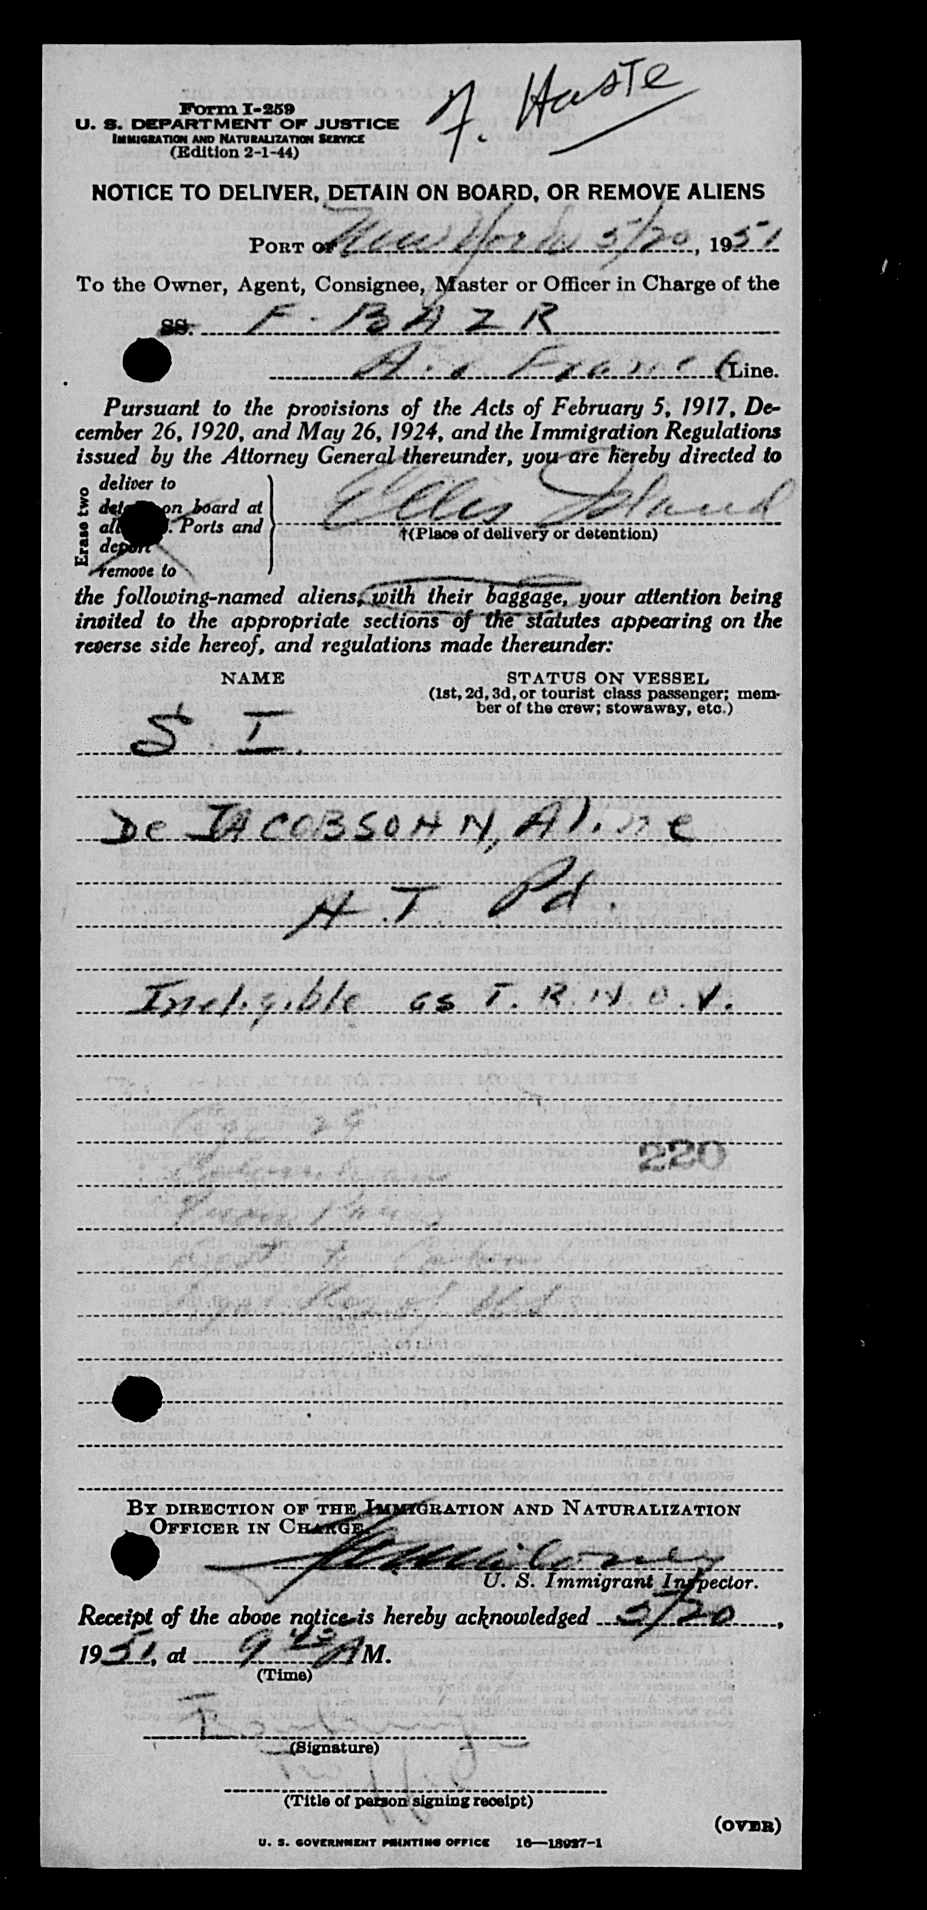 Form I-259
U. S. DEPARTMENT OF JUSTICE
IMMIGRATION AND NATURALIZATION SERVICE
(Edition 2-1-44)
Haste
NOTICE TO DELIVER, DETAIN ON BOARD, OR REMOVE ALIENS
PORT OF New York 5/20, 1951
To the Owner, Agent, Consignee, Master or Officer in Charge of the
SS. F-BAZR
Air France Line.
Pursuant to the provisions of the Acts of February 5, 1917, De-
cember 26, 1920, and May 26, 1924, and the Immigration Regulations
issued by the Attorney General thereunder, you are hereby directed to
Erase two
deliver to
on board at
Ports and
deport
remove to
Ellis Island
†(Place of delivery or detention)
the following-named aliens, with their baggage, your attention being
invited to the appropriate sections of the statutes appearing on the
reverse side hereof, and regulations made thereunder:
NAME
STATUS ON VESSEL
(1st, 2d, 3d, or tourist class passenger; mem-
ber of the crew; stowaway, etc.)
S. I.
De JACOBSOHN, Aline
H.T Pd.
Ineligible as T.R.N.O.V.
220
BY DIRECTION OF THE IMMIGRATION AND NATURALIZATION
OFFICER IN CHARGE
U. S. Immigrant Inspector.
Receipt of the above notice is hereby acknowledged 5/20,
1951, at 9 45 A M.
(Time)
(Signature)
(Title of person signing receipt)
(OVER)
U. S. GOVERNMENT PRINTING OFFICE 16—18927-1